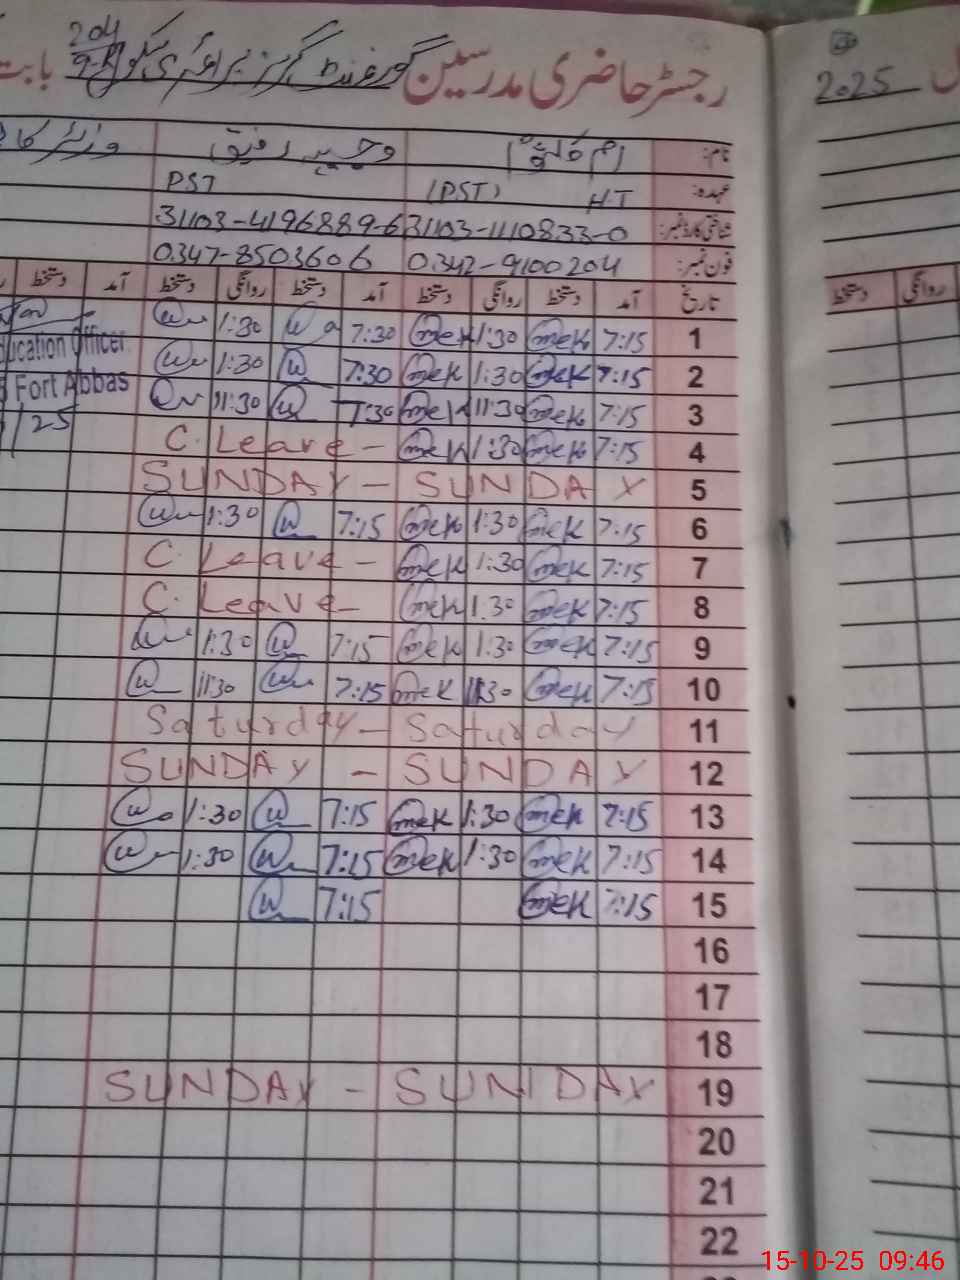 رجسٹر حاضری مدرسین گورنمنٹ گرلز پرائمری سکول 204 9-R بابت
2025
نام:
عہدہ: H.T (PST) PST
شناختی کارڈ نمبر: 31103-1110833-0 31103-4196889-6
فون نمبر: 0342-9100204 0347-8503606
تاریخ آمد دستخط روانگی دستخط آمد دستخط روانگی دستخط آمد دستخط
روانگی دستخط
1 7:15 mek 1:30 mek 7:30 1:30
ucation Officer
2 7:15 mek 1:30 mek 7:30 1:30
Fort Abbas
3 7:15 mek 11:30 mek 7:30 11:30
/25
4 7:15 mek 1:30 mek C. Leave -
5 SUNDAY - SUNDAY
6 7:15 mek 1:30 mek 7:15 1:30
7 7:15 mek 1:30 mek C. Leave -
8 7:15 mek 1:30 mek C. Leave -
9 7:15 mek 1:30 mek 7:15 1:30
10 7:15 mek 11:30 mek 7:15 11:30
11 Saturday - Saturday
12 SUNDAY - SUNDAY
13 7:15 mek 1:30 mek 7:15 1:30
14 7:15 mek 1:30 mek 7:15 1:30
15 7:15 mek 7:15
16
17
18
19 SUNDAY - SUNDAY
20
21
22
15-10-25 09:46